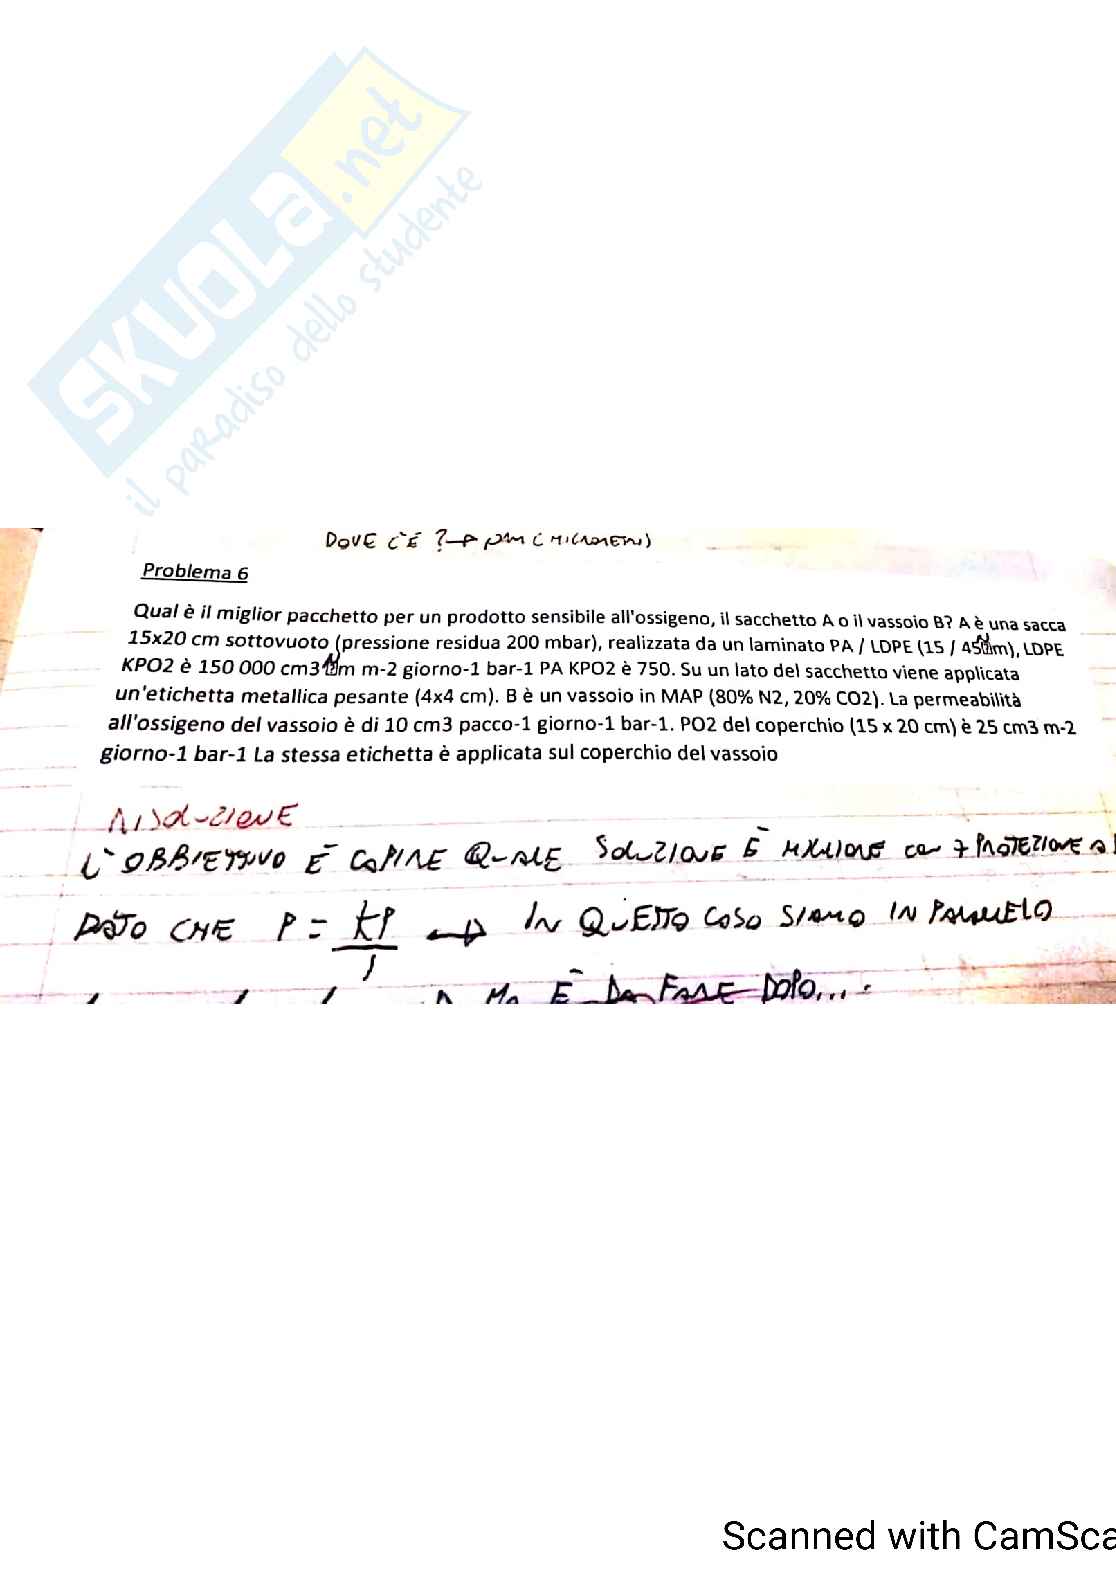 SKUOLa.net
il paradiso dello studente
DOVE C'È ?→ μm (MICROMETRI)
Problema 6
Qual è il miglior pacchetto per un prodotto sensibile all'ossigeno, il sacchetto A o il vassoio B? A è una sacca
15x20 cm sottovuoto (pressione residua 200 mbar), realizzata da un laminato PA / LDPE (15 / 45μm), LDPE
KPO2 è 150 000 cm3 μm m-2 giorno-1 bar-1 PA KPO2 è 750. Su un lato del sacchetto viene applicata
un'etichetta metallica pesante (4x4 cm). B è un vassoio in MAP (80% N2, 20% CO2). La permeabilità
all'ossigeno del vassoio è di 10 cm3 pacco-1 giorno-1 bar-1. PO2 del coperchio (15 x 20 cm) è 25 cm3 m-2
giorno-1 bar-1 La stessa etichetta è applicata sul coperchio del vassoio
RISOLUZIONE
L'OBBIETTIVO È CAPIRE QUALE SOLUZIONE È MIGLIORE CON + PROTEZIONE
DATO CHE P = KP / S → IN QUESTO CASO SIAMO IN PARALLELO
MA È DA FARE DOPO....